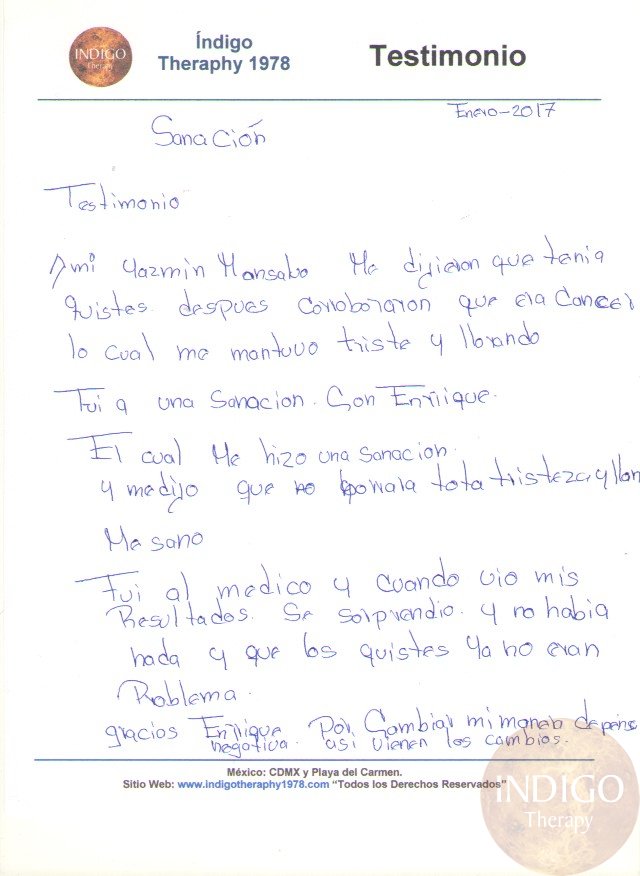 INDIGO
Therapy
Índigo
Theraphy 1978
Testimonio
Enero-2017
Sanación
Testimonio
A mi Yazmin Monsalvo Me dijieron que tenia
quistes despues corroboraron que era Cancer
lo cual me mantuvo triste y llorando
Fui a una Sanacion. Con Enrrique.
El cual Me hizo una Sanacion.
y medijo que no borrara tota tristeza y llan
Me sano
Fui al medico y cuando vio mis
Resultados. Se sorprendio. y no habia
nada y que los quistes ya no eran
Problema.
gracias Enrrique Por Cambiar mi manera de pens
negativa. así vienen los cambios.
México: CDMX y Playa del Carmen.
Sitio Web: www.indigotheraphy1978.com “Todos los Derechos Reservados”
INDIGO
Therapy